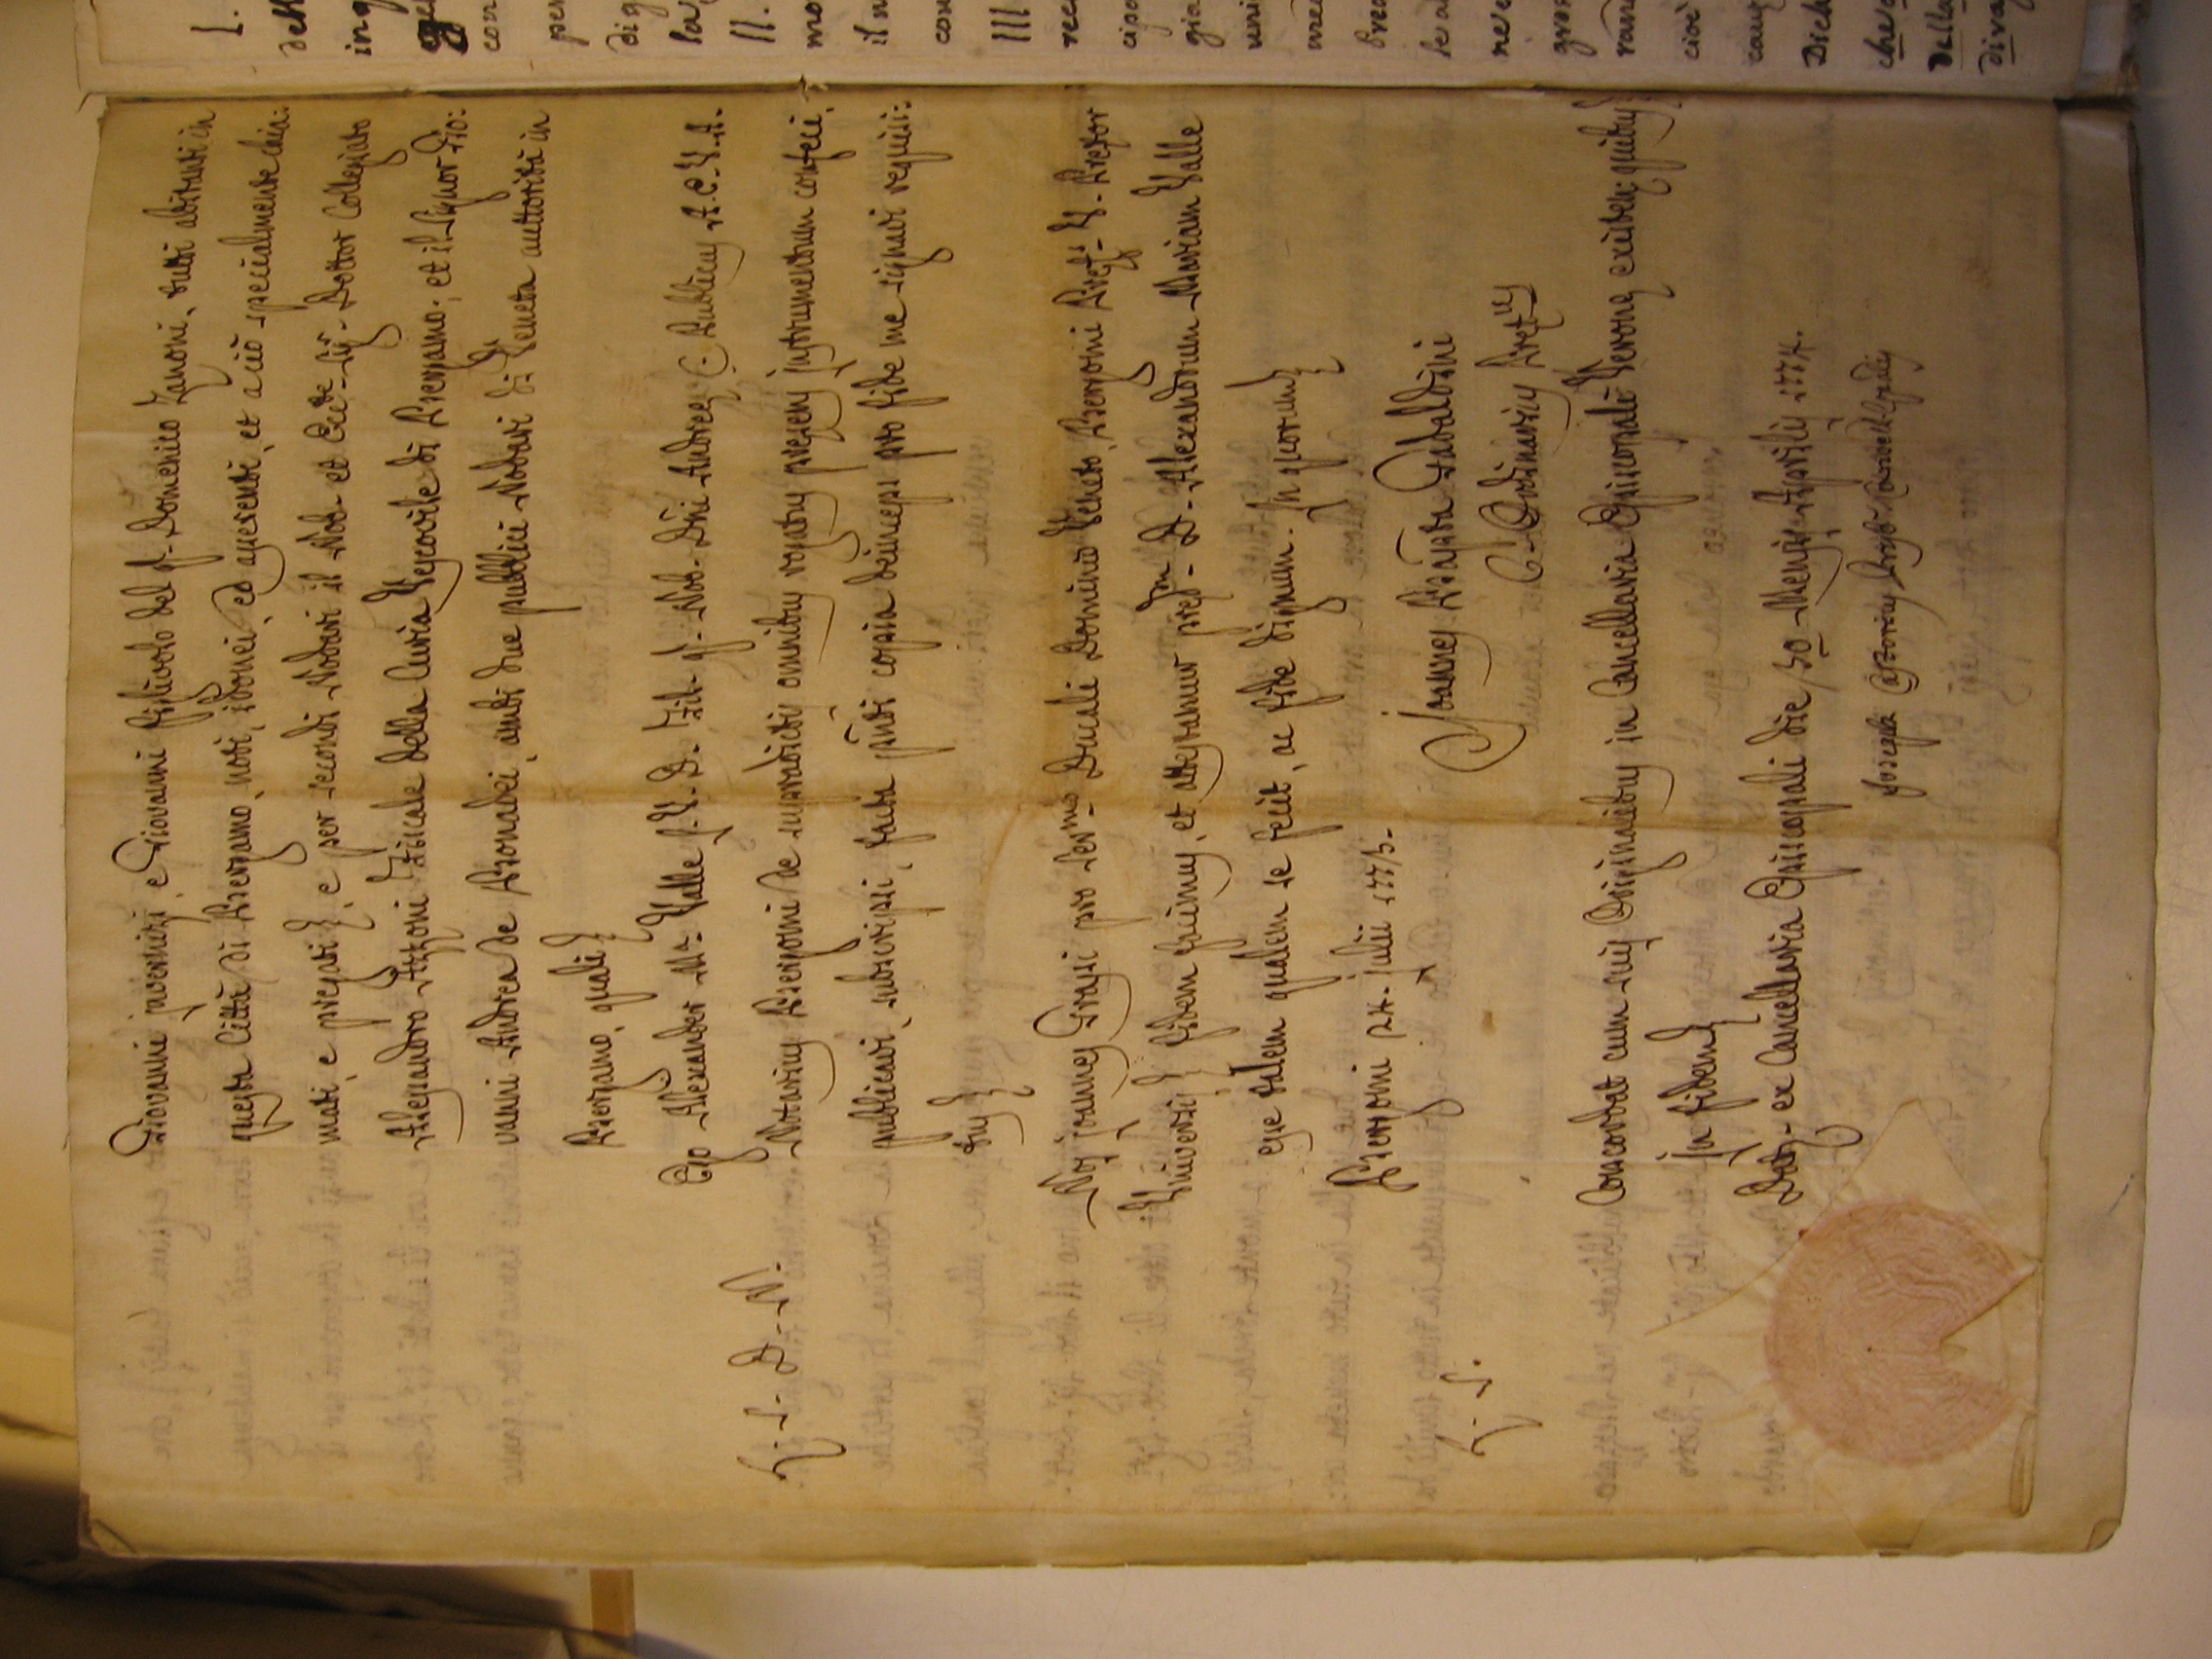 Giovanni juvenizi, e Giovanni figliuolo del q. Domenico Zanoni, tutti abitanti in
questa Città di Bergamo, noti, idonei, ed asserenti, et a ciò specialmente chia:
mati, e pregati}, e per secondi Nodari il Nob. et Ecc.te Sig. Dottor Collegiato
Alessandro Azzoni Fiscale della Curia Vescovile di Bergamo, et il Signor Gio:
vanni Andrea de Bronadei, ambi due publici Nodari di Veneta auttorità in
Bergamo, quali}
Ego Alexander M.a Valle J. U. D. Fil. q. Nob. Dni Andreæ C. Publicus A. C. V. A.
Notarius Bergomi de supradictis omnibus rogatus presens instrumentum confeci,
publicavi, subscripsi, facta pñti copia deinceps pro fide me signavi requisi:
tus}
L. S. D. N.
Nos Joannes Grassi pro Ser.mo Ducali Dominio Veneto, Bergomi Præf.s V. Prætor
Universis} fidem facimus, et attestamur præf.m D. Alexandrum Mariam Valle
esse talem qualem se fecit, ac fide dignum. In quorum}
Bergomi 24. Julii 1775.
Joannes Baȓsta Gabaldini
C. Ordinarius Præf.us
L. S.
Concordat cum suis Originalibus in Cancellaria Episcopali Veronæ existen: quibus}
In fidem}
Dat. ex Cancellaria Episcopali die 30 Mensis Aprilis 1774.
Joseph
I.
dell
ing
con
per
di q
la
II.
mo
il n
con
III
rec
cipa
gia
uni
Pred
se a
ne e
gros
ran
cioè
cau
Dich
che
della
diva